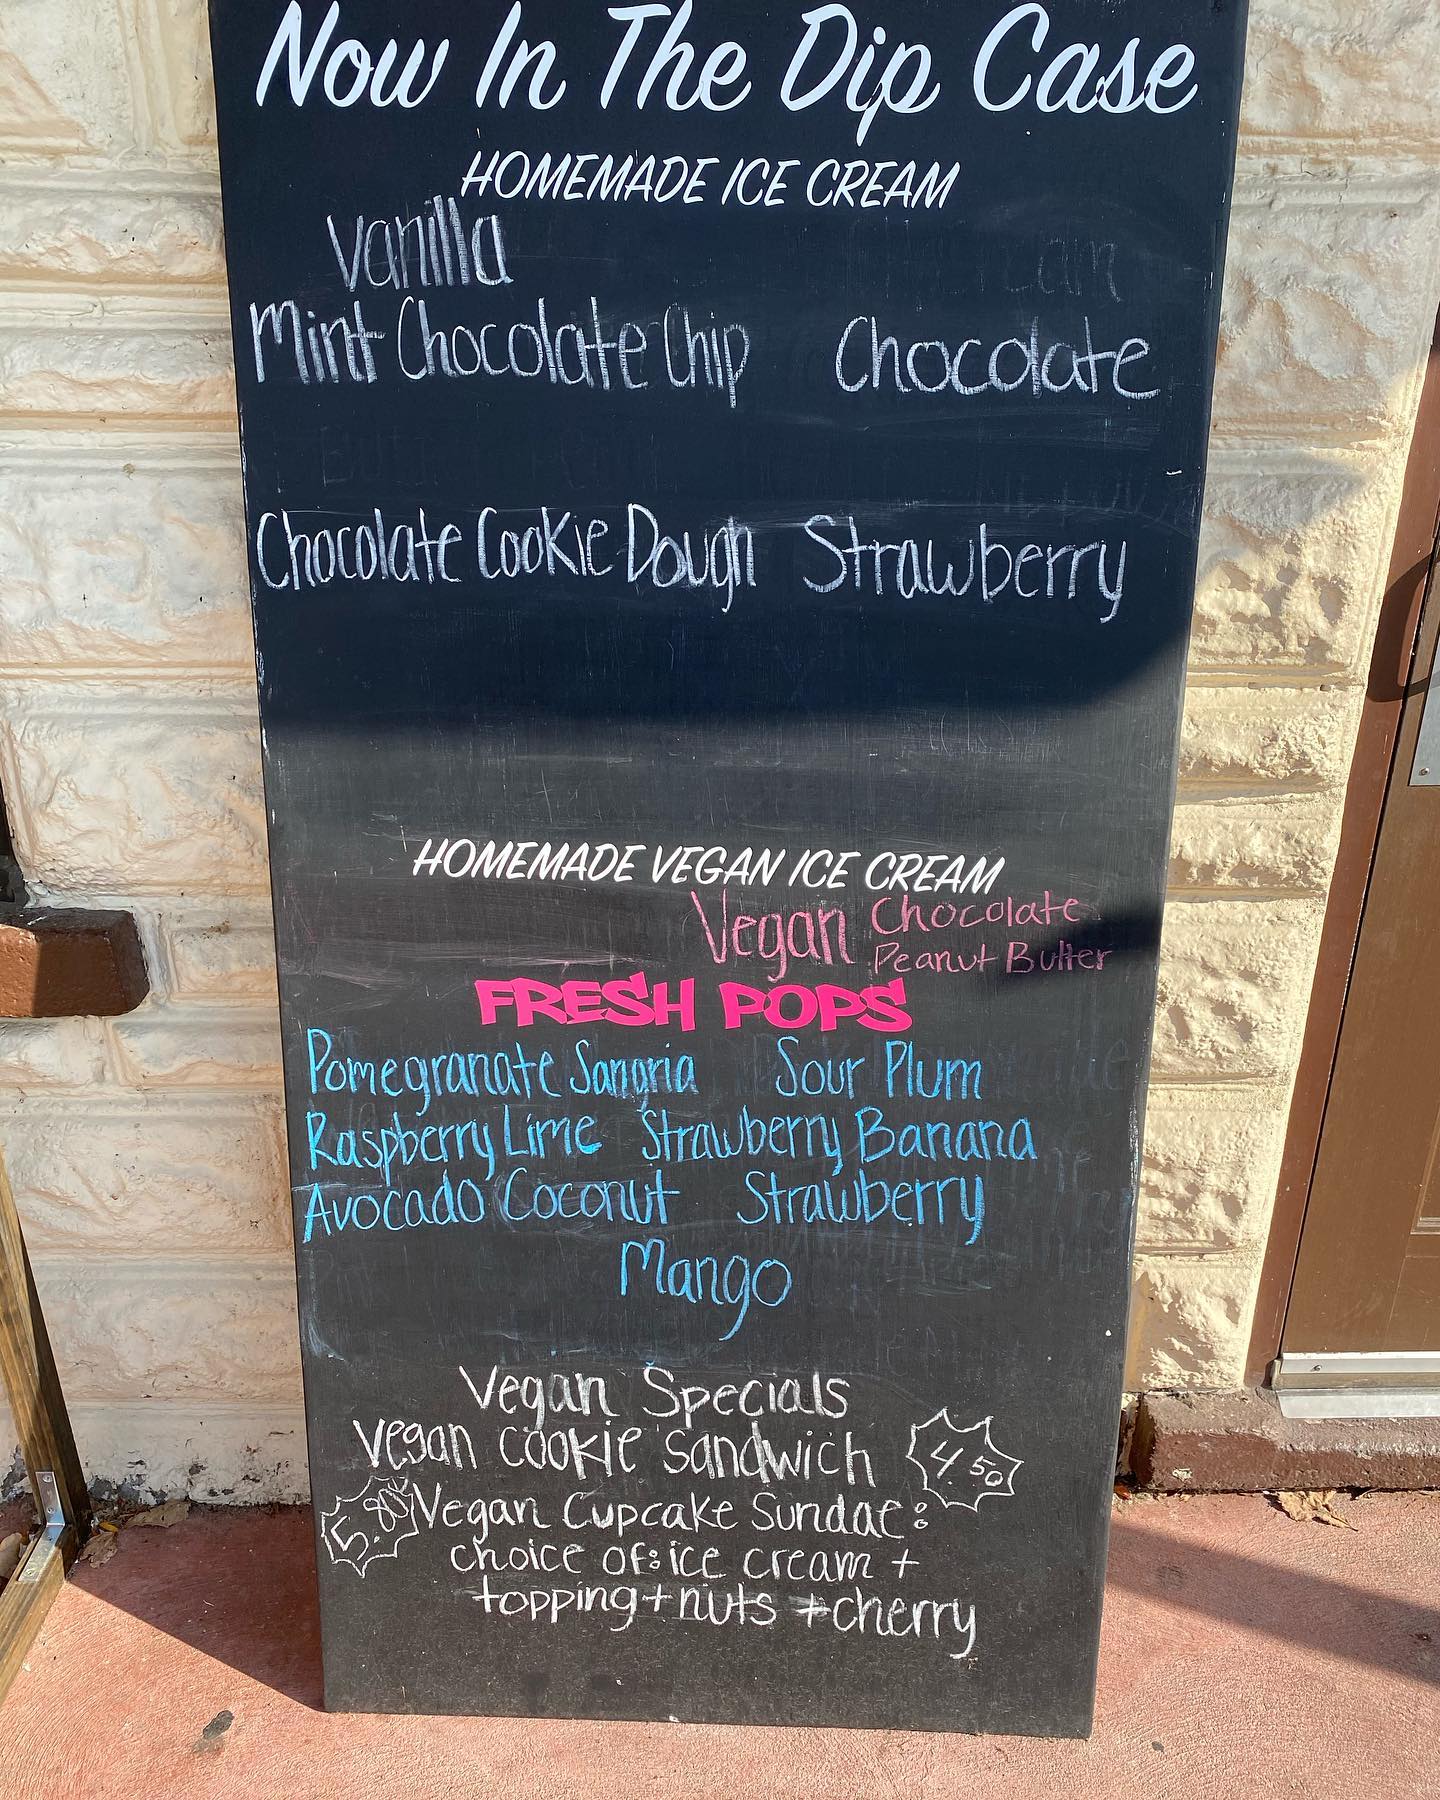 Now In The Dip Case
HOMEMADE ICE CREAM
Vanilla
Mint Chocolate Chip Chocolate
Chocolate Cookie Dough Strawberry
HOMEMADE VEGAN ICE CREAM
Vegan Chocolate
Peanut Butter
FRESH POPS
Pomegranate Sangria Sour Plum
Raspberry Lime Strawberry Banana
Avocado Coconut Strawberry
Mango
Vegan Specials
Vegan cookie sandwich 4.50
5.80 Vegan Cupcake Sundae:
choice of: ice cream +
topping + nuts + cherry